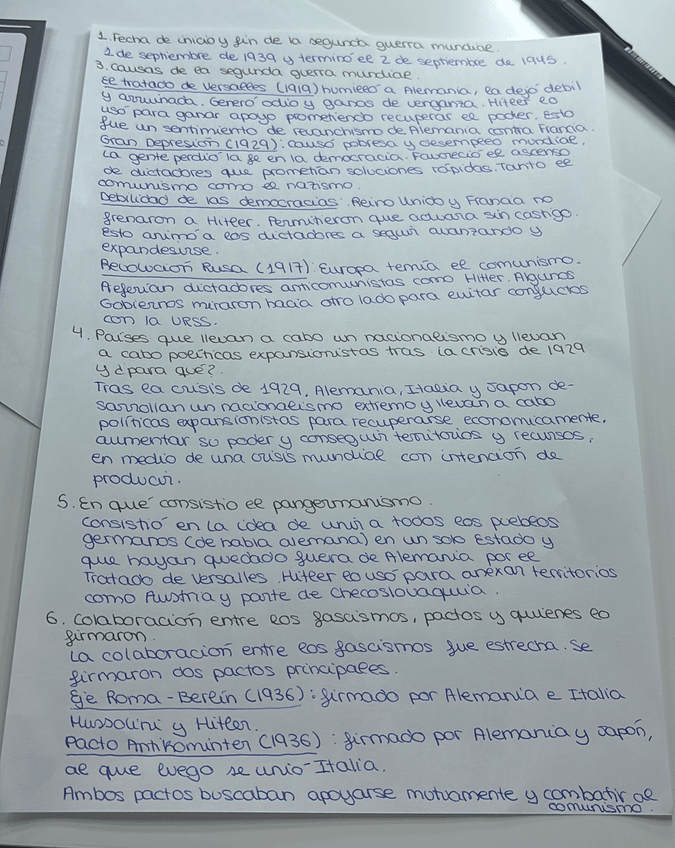 1. Fecha de inicio y fin de la segunda guerra mundial.
1 de septiembre de 1939 y terminó el 2 de septiembre de 1945.
3. Causas de la segunda guerra mundial.
El tratado de Versalles (1919) humilló a Alemania, la dejó debil
y arruinada. Generó odio y ganas de venganza. Hitler lo
usó para ganar apoyo prometiendo recuperar el poder. Esto
fue un sentimiento de revanchismo de Alemania contra Francia.
Gran Depresión (1929): causó pobresa y desempleo mundial.
La gente perdió la fe en la democracia. Favoreció el ascenso
de dictadores que prometían soluciones rápidas. Tanto el
comunismo como el nazismo.
Debilidad de las democracias: Reino Unido y Francia no
frenaron a Hitler. Permitieron que actuara sin castigo.
Esto animó a los dictadores a seguir avanzando y
expandesirse.
Revolución Rusa (1917): Europa temía el comunismo.
Preferían dictadores anticomunistas como Hitler. Algunos
Gobiernos miraron hacia otro lado para evitar conflictos
con la URSS.
4. Países que llevan a cabo un nacionalismo y llevan
a cabo políticas expansionistas tras la crisis de 1929
y ¿para qué?.
Tras la crisis de 1929, Alemania, Italia y Japon de-
sarrollan un nacionalismo extremo y llevan a cabo
políticas expansionistas para recuperarse economicamente,
aumentar su poder y conseguir territorios y recursos,
en medio de una crisis mundial con intención de
producir.
5. En qué consistio el pangermanismo.
Consistió en la idea de unir a todos los pueblos
germanos (de habla alemana) en un solo Estado y
que hayan quedado fuera de Alemania por el
Tratado de Versalles. Hitler lo usó para anexar territorios
como Austria y parte de Checoslovaquia.
6. Colaboración entre los fascismos, pactos y quienes lo
firmaron.
La colaboración entre los fascismos fue estrecha. Se
firmaron dos pactos principales.
Eje Roma-Berlín (1936): firmado por Alemania e Italia
Mussolini y Hitler.
Pacto Antikominter (1936): firmado por Alemania y Japón,
al que luego se unió Italia.
Ambos pactos buscaban apoyarse mutuamente y combatir al
comunismo.